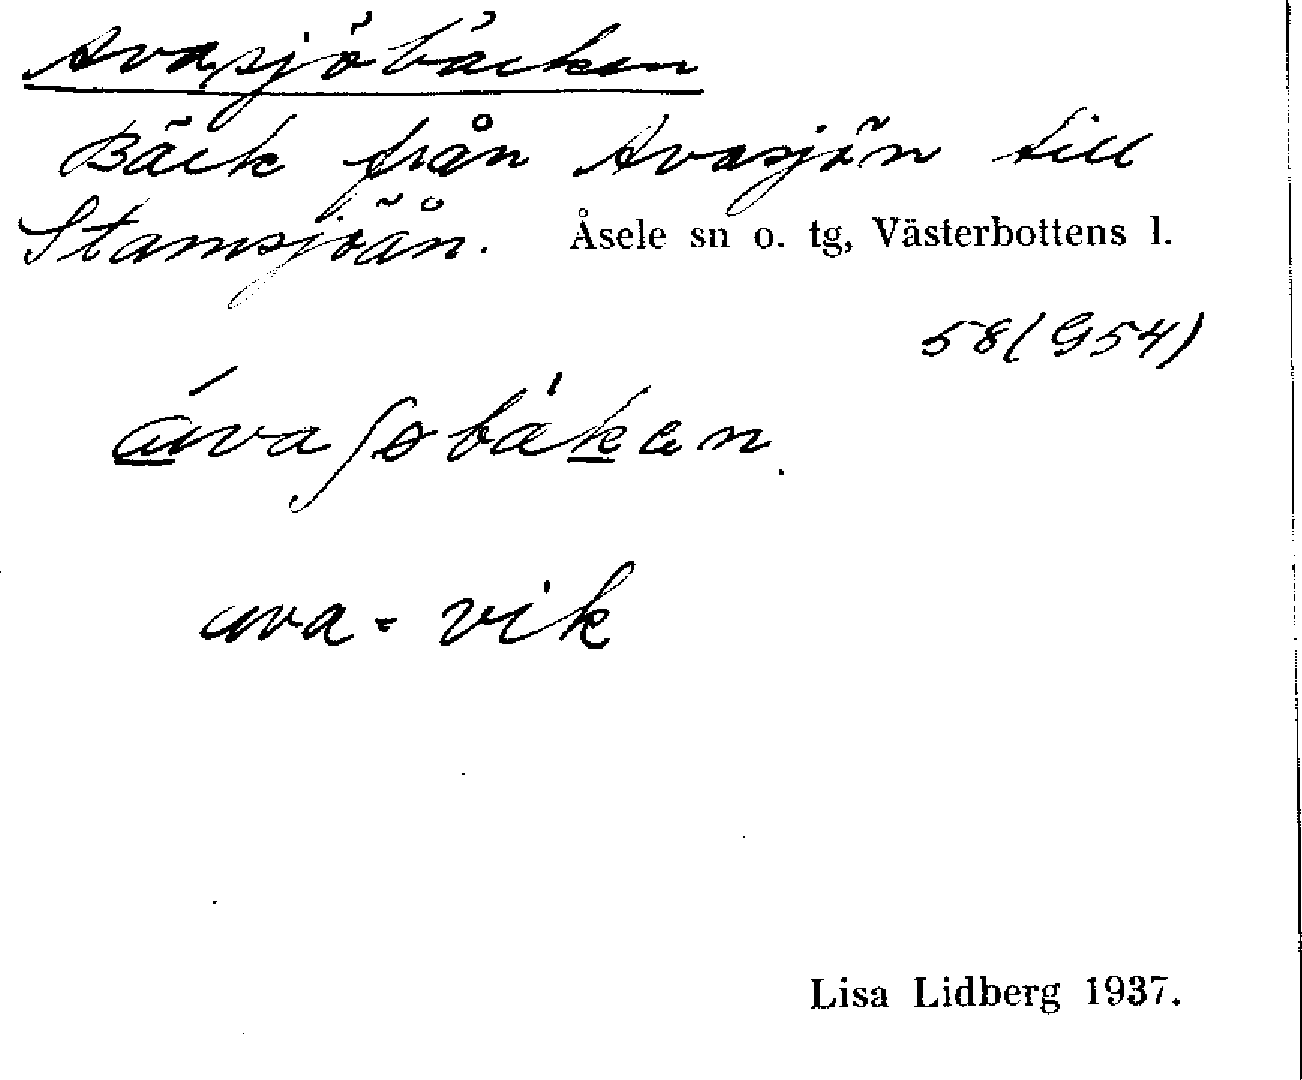 Avasjöbäcken
Bäck från Avasjön till
Stamsjöån. Åsele sn o. tg, Västerbottens l.
58(954)
ava = vik
Lisa Lidberg 1937.